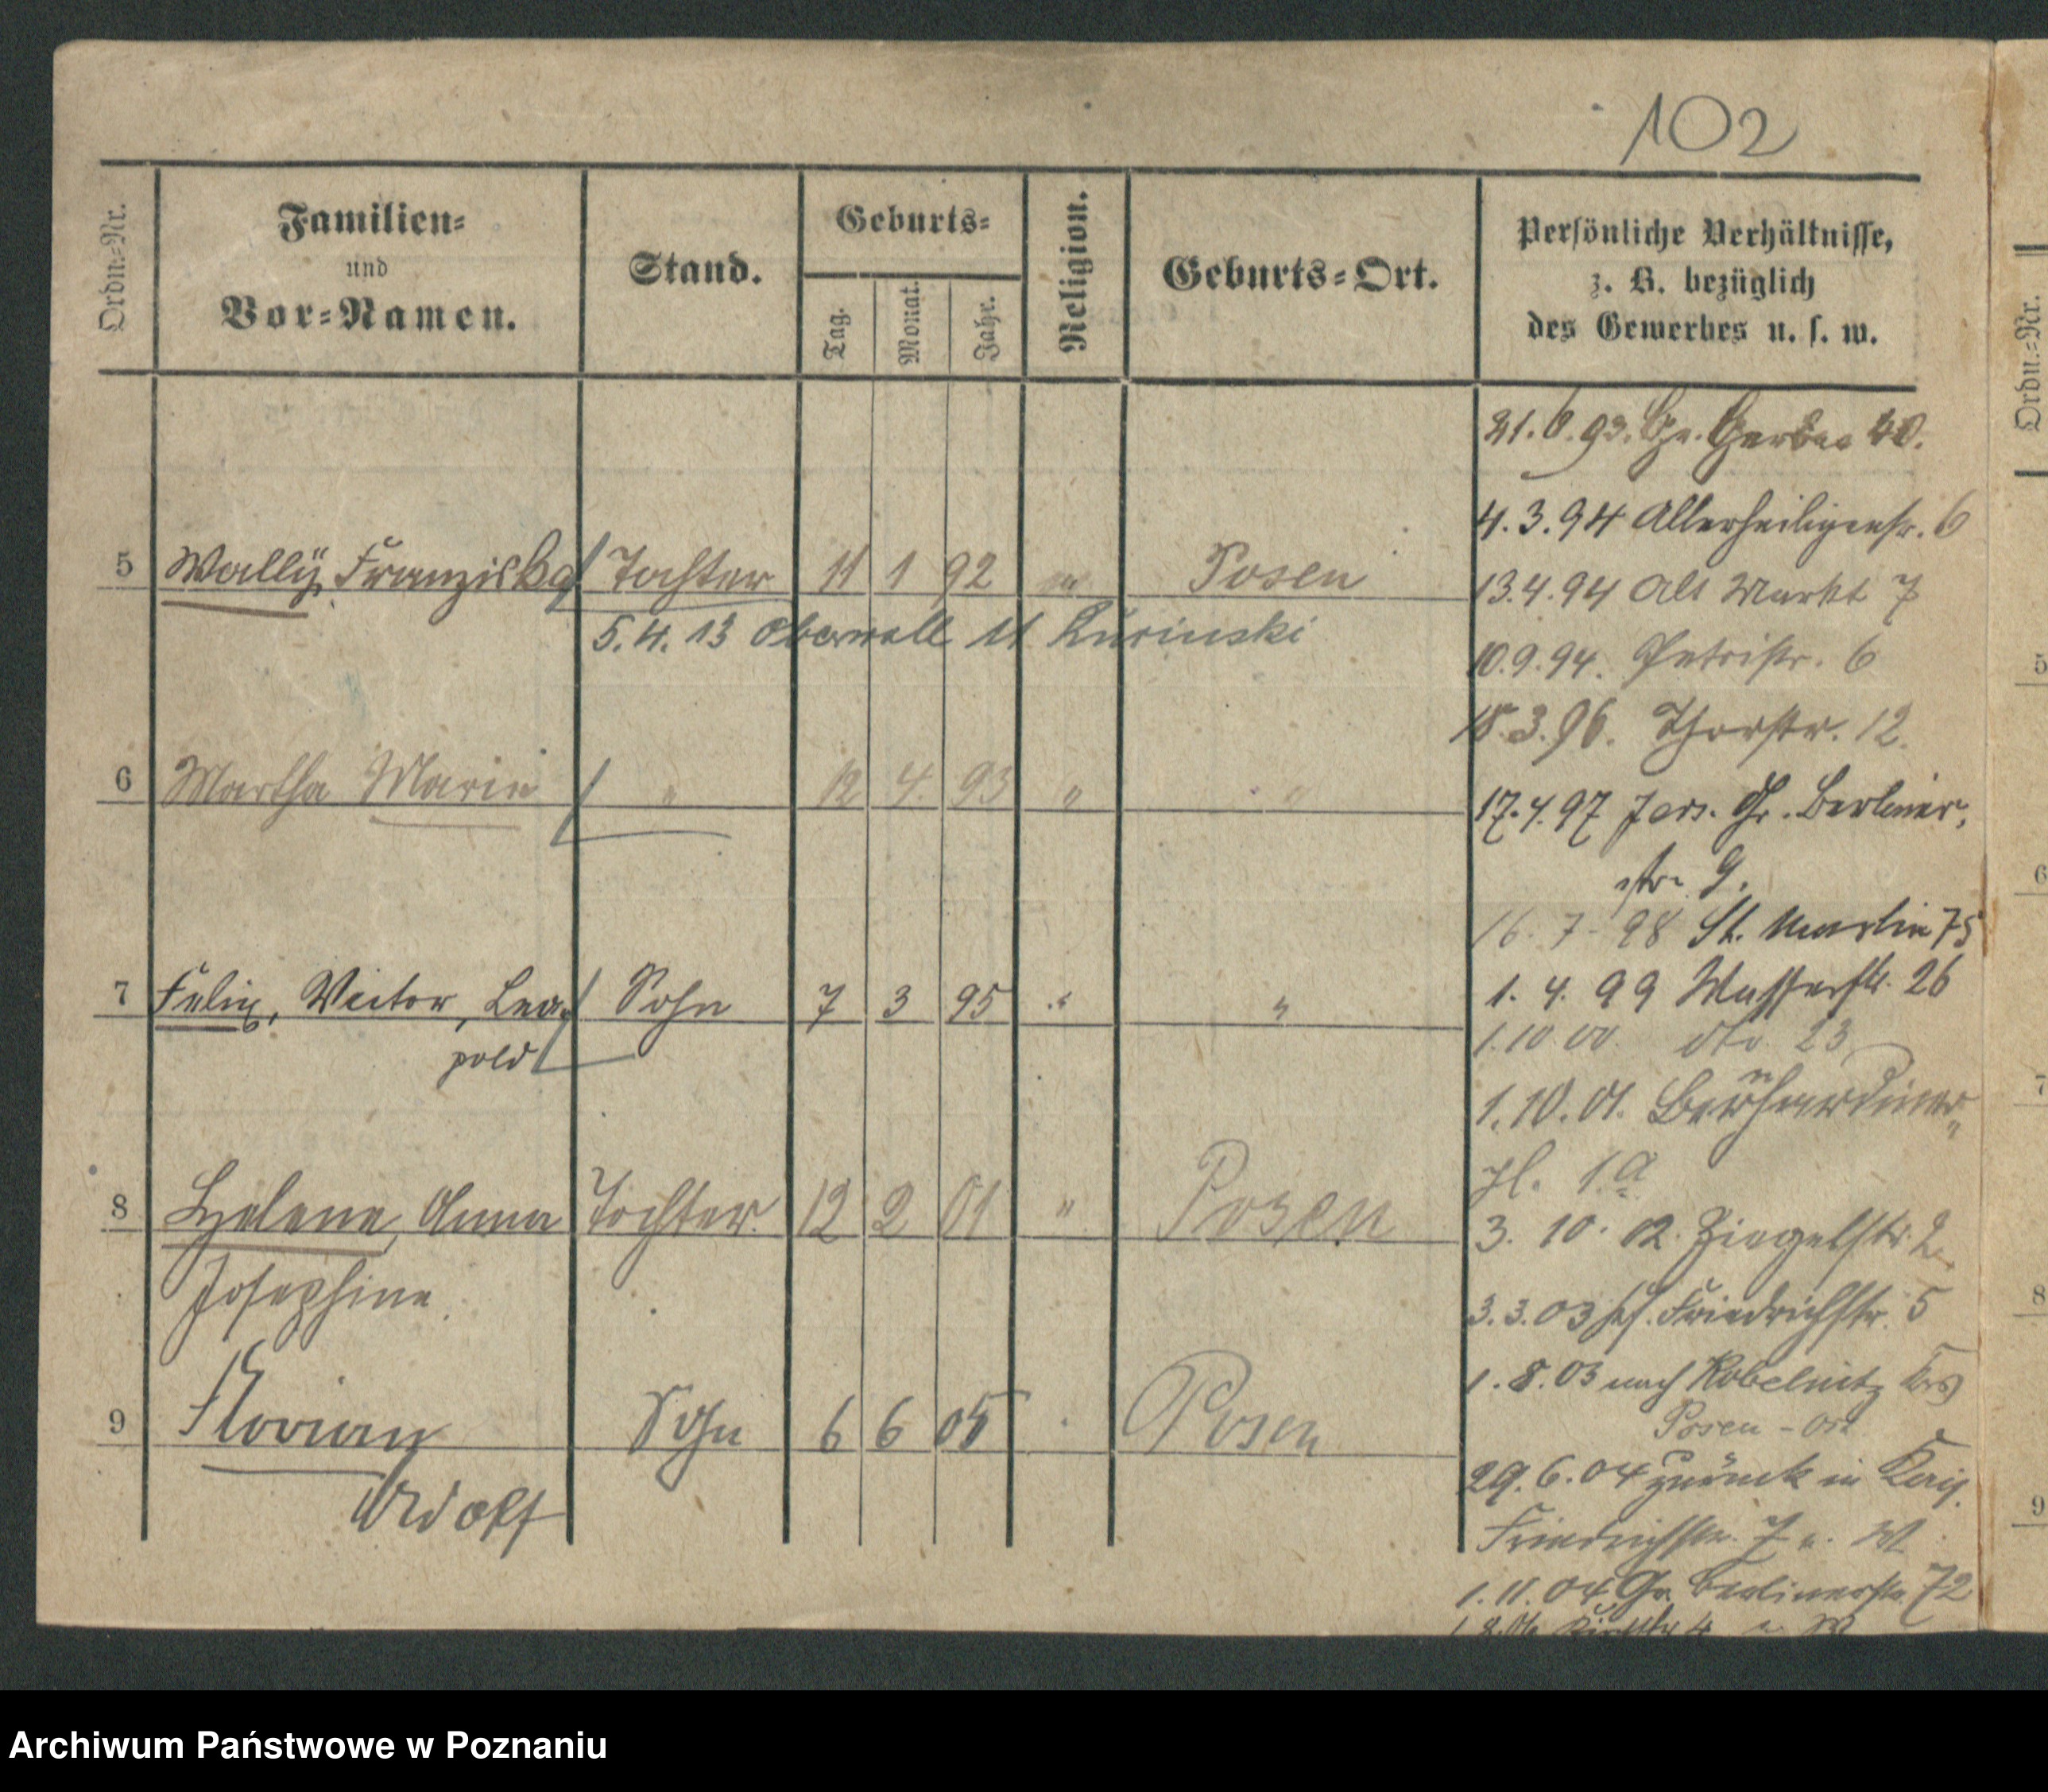 102
Ordn.=Nr.
Familien=
und
Vor=Namen.
Stand.
Geburts=
Tag.
Monat.
Jahr.
Religion.
Geburts=Ort.
Persönliche Verhältnisse,
z. B. bezüglich
des Gewerbes u. s. w.
21. 6. 93. Gr. Gerber 40.
4. 3. 94 Allerheiligenstr. 6
5 Wally, Franziska Tochter 11 1 92 Posen
13.4.94 Alt Markt 7
5. 4. 13 Oberwall 11
10.9.94. Petristr. 6
18.3.96. Thorstr. 12.
6 Martha Marie " 12 4. 93 " "
17.4.97 Jers. Gr. Berliner-
str. 9.
16. 7. 98 St. Martin 75
7 Felix, Victor, Leo- Sohn 7 3 95 " "
pold
1. 4. 99 Wasserstr. 26
1.10 00. dto 23
1.10.01. Bernhardiner-
pl. 1.a
8 Helene, Anna Tochter 12 2 01 " Posen
Josephine
3. 10. 02. Ziegelstr. 2
3.3.03 Friedrichstr. 5
1. 8. 03 nach Kobelnitz Krs
Posen - Ost
9 Florian Sohn 6 6 05 Posen
Adolf
29. 6. 04 zurück in
Friedrichstr. 7
1. 11. 04 Gr. Berlinerstr. 72
Ordn.=Nr.
5
6
7
8
9
Archiwum Państwowe w Poznaniu